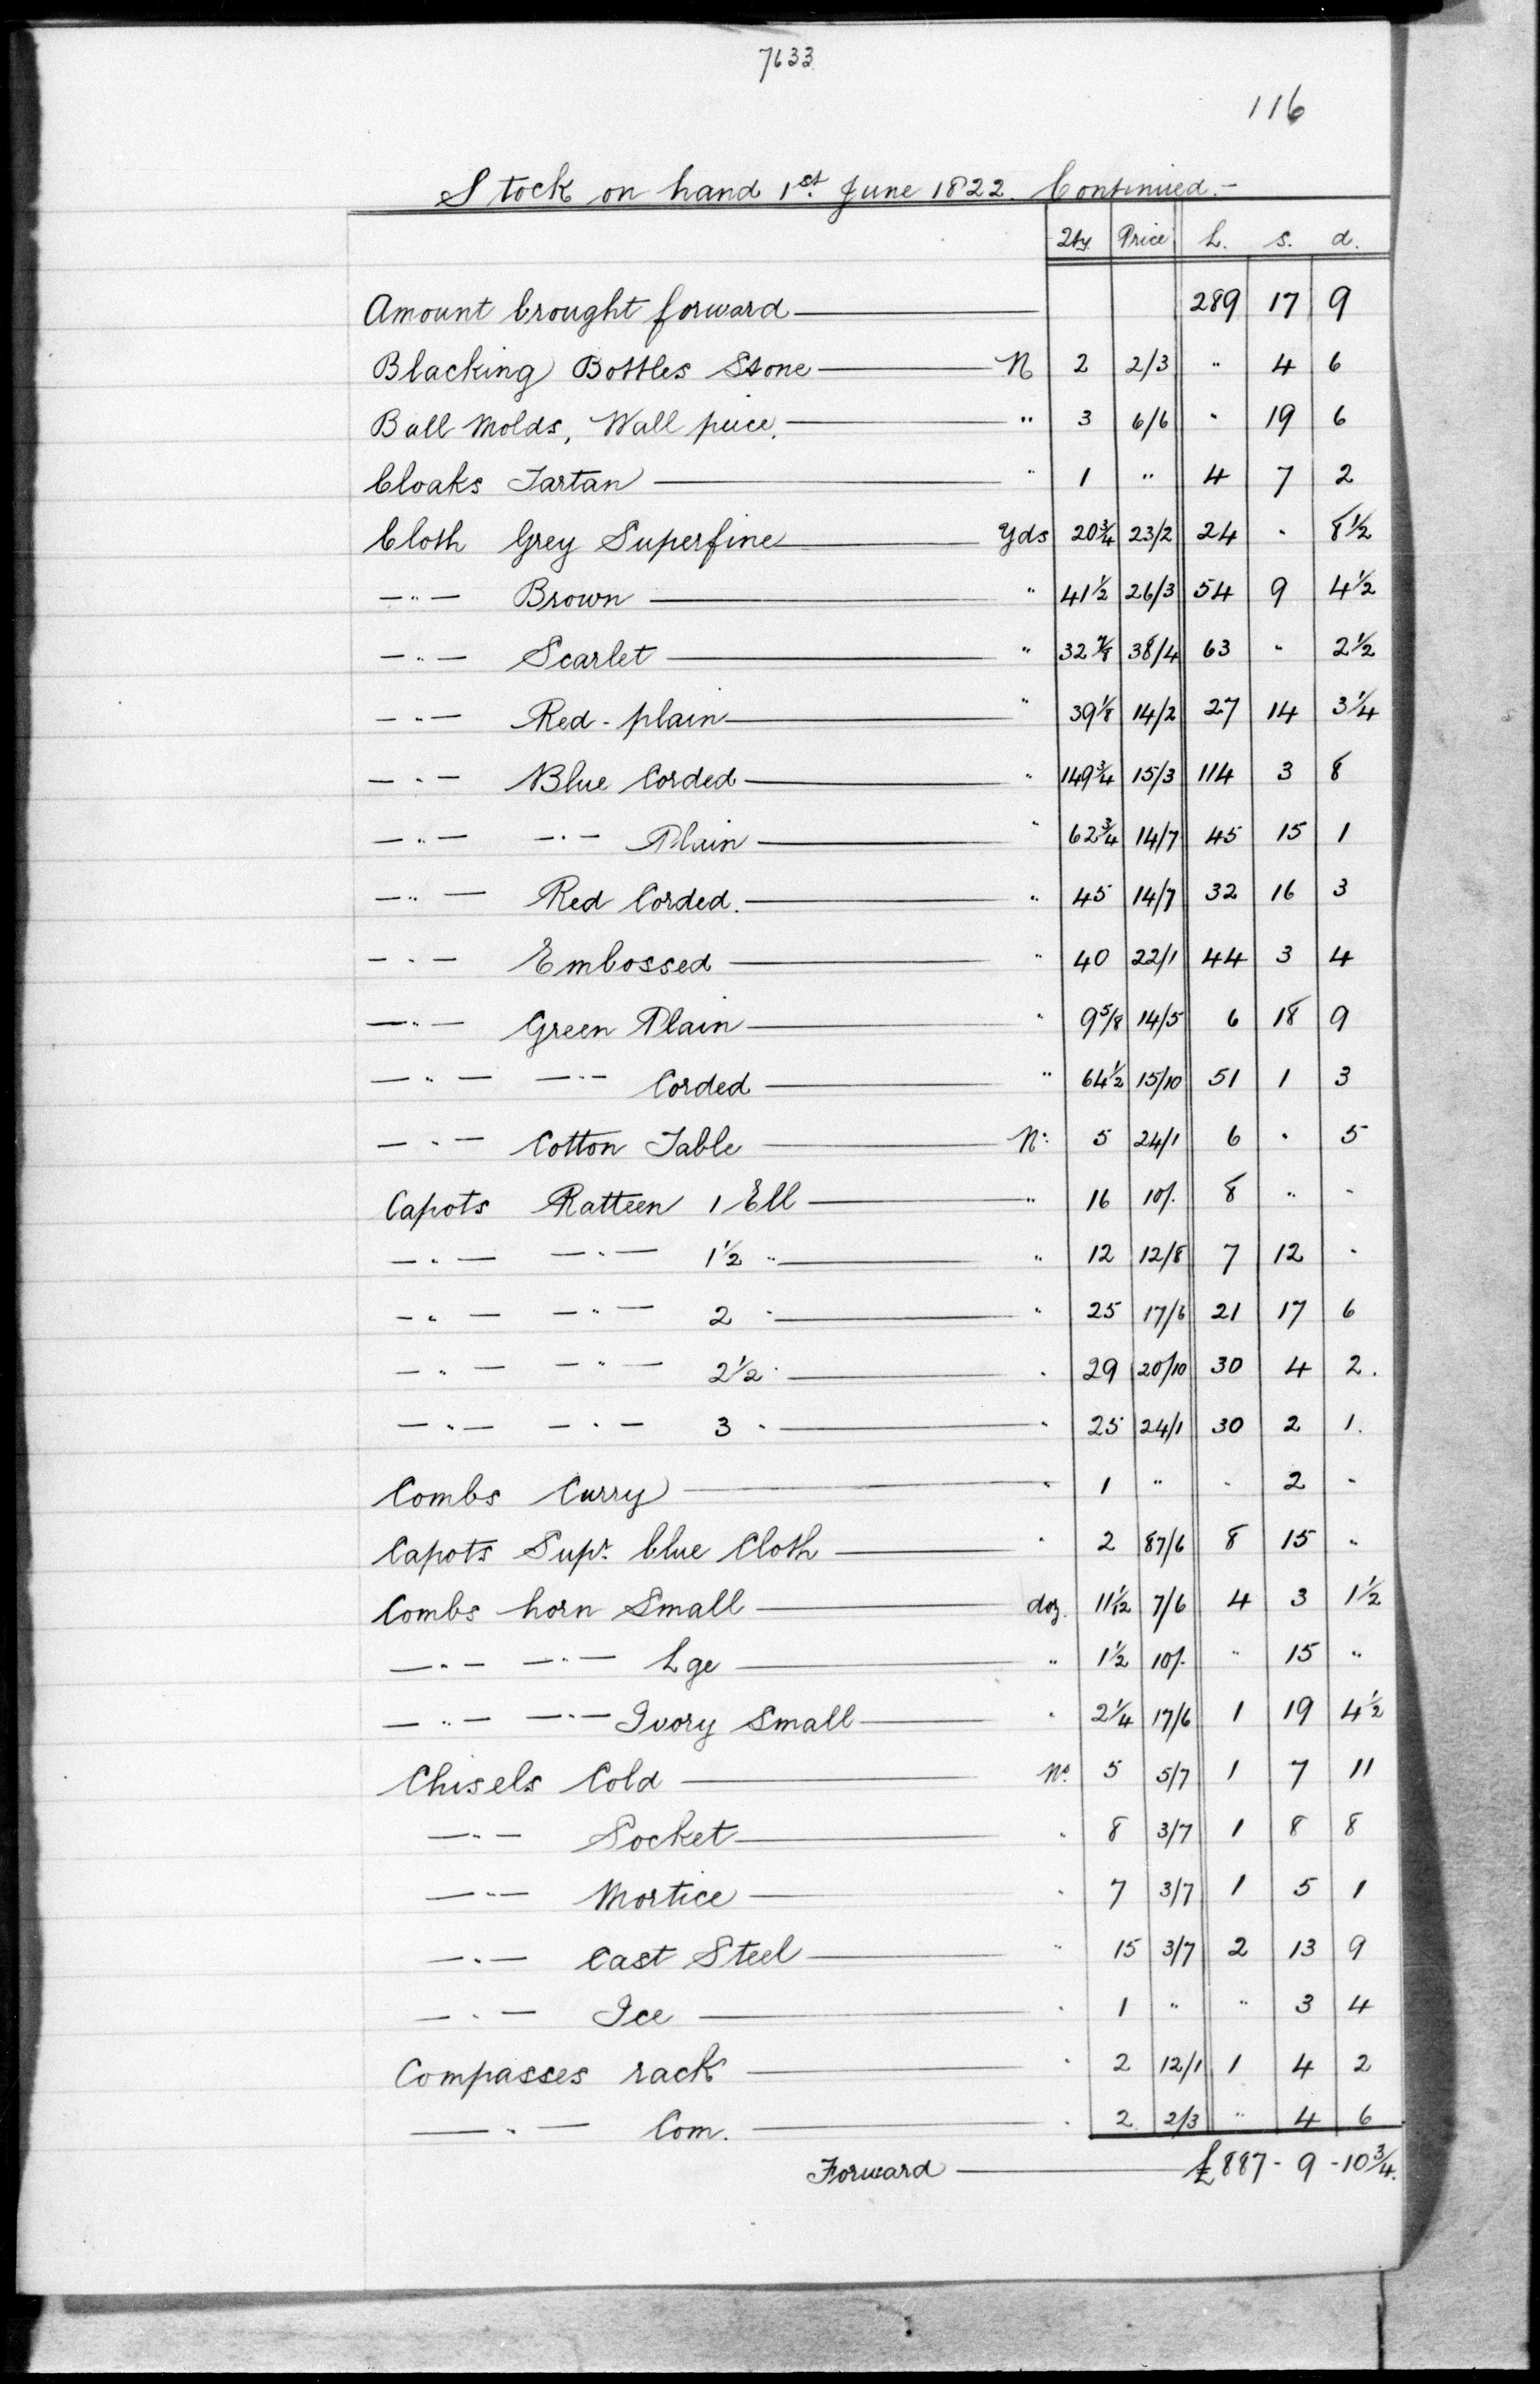 7633
116
Stock on hand 1st. June 1822. Continued.-
Qty. Price L. s. d.
Amount brought forward 289 17 9
Blacking Bottles Stone N 2 2/3 " 4 6
Ball Molds, Wall piece. " 3 6/6 " 19 6
Cloaks Tartan " 1 " 4 7 2
Cloth Grey Superfine Yds 20¾ 23/2 24 " 8½
—"— Brown " 41½ 26/3 54 9 4½
—"— Scarlet " 32⅞ 38/4 63 " 2½
—"— Red-plain " 39⅛ 14/2 27 14 3¼
—"— Blue Corded " 149¾ 15/3 114 3 8
—"— —"— Plain " 62¾ 14/7 45 15 1
—"— Red Corded. " 45 14/7 32 16 3
—"— Embossed " 40 22/1 44 3 4
—"— Green Plain " 9⅝ 14/5 6 18 9
—"— —"— Corded " 64½ 15/10 51 1 3
—"— Cotton Table No. 5 24/1 6 " 5
Capots Ratteen 1 Ell " 16 10/- 8 " "
—"— —"— 1½ " " 12 12/8 7 12 "
—"— —"— 2 " " 25 17/6 21 17 6
—"— —"— 2½ " " 29 20/10 30 4 2.
—"— —"— 3 " " 25 24/1 30 2 1.
Combs Curry " 1 " " 2 "
Capots Supr. blue Cloth " 2 87/6 8 15 "
Combs horn Small doz. 11 1/12 7/6 4 3 1½
—"— —"— Lge " 1½ 10/- " 15 "
—"— —"— Ivory Small " 2¼ 17/6 1 19 4½
Chisels Cold No. 5 5/7 1 7 11
—"— Socket " 8 3/7 1 8 8
—"— Mortice " 7 3/7 1 5 1
—"— Cast Steel " 15 3/7 2 13 9
—"— Ice " 1 " " 3 4
Compasses rack " 2 12/1 1 4 2
—"— Com. " 2 2/3 " 4 6
Forward £887-9-10¾.